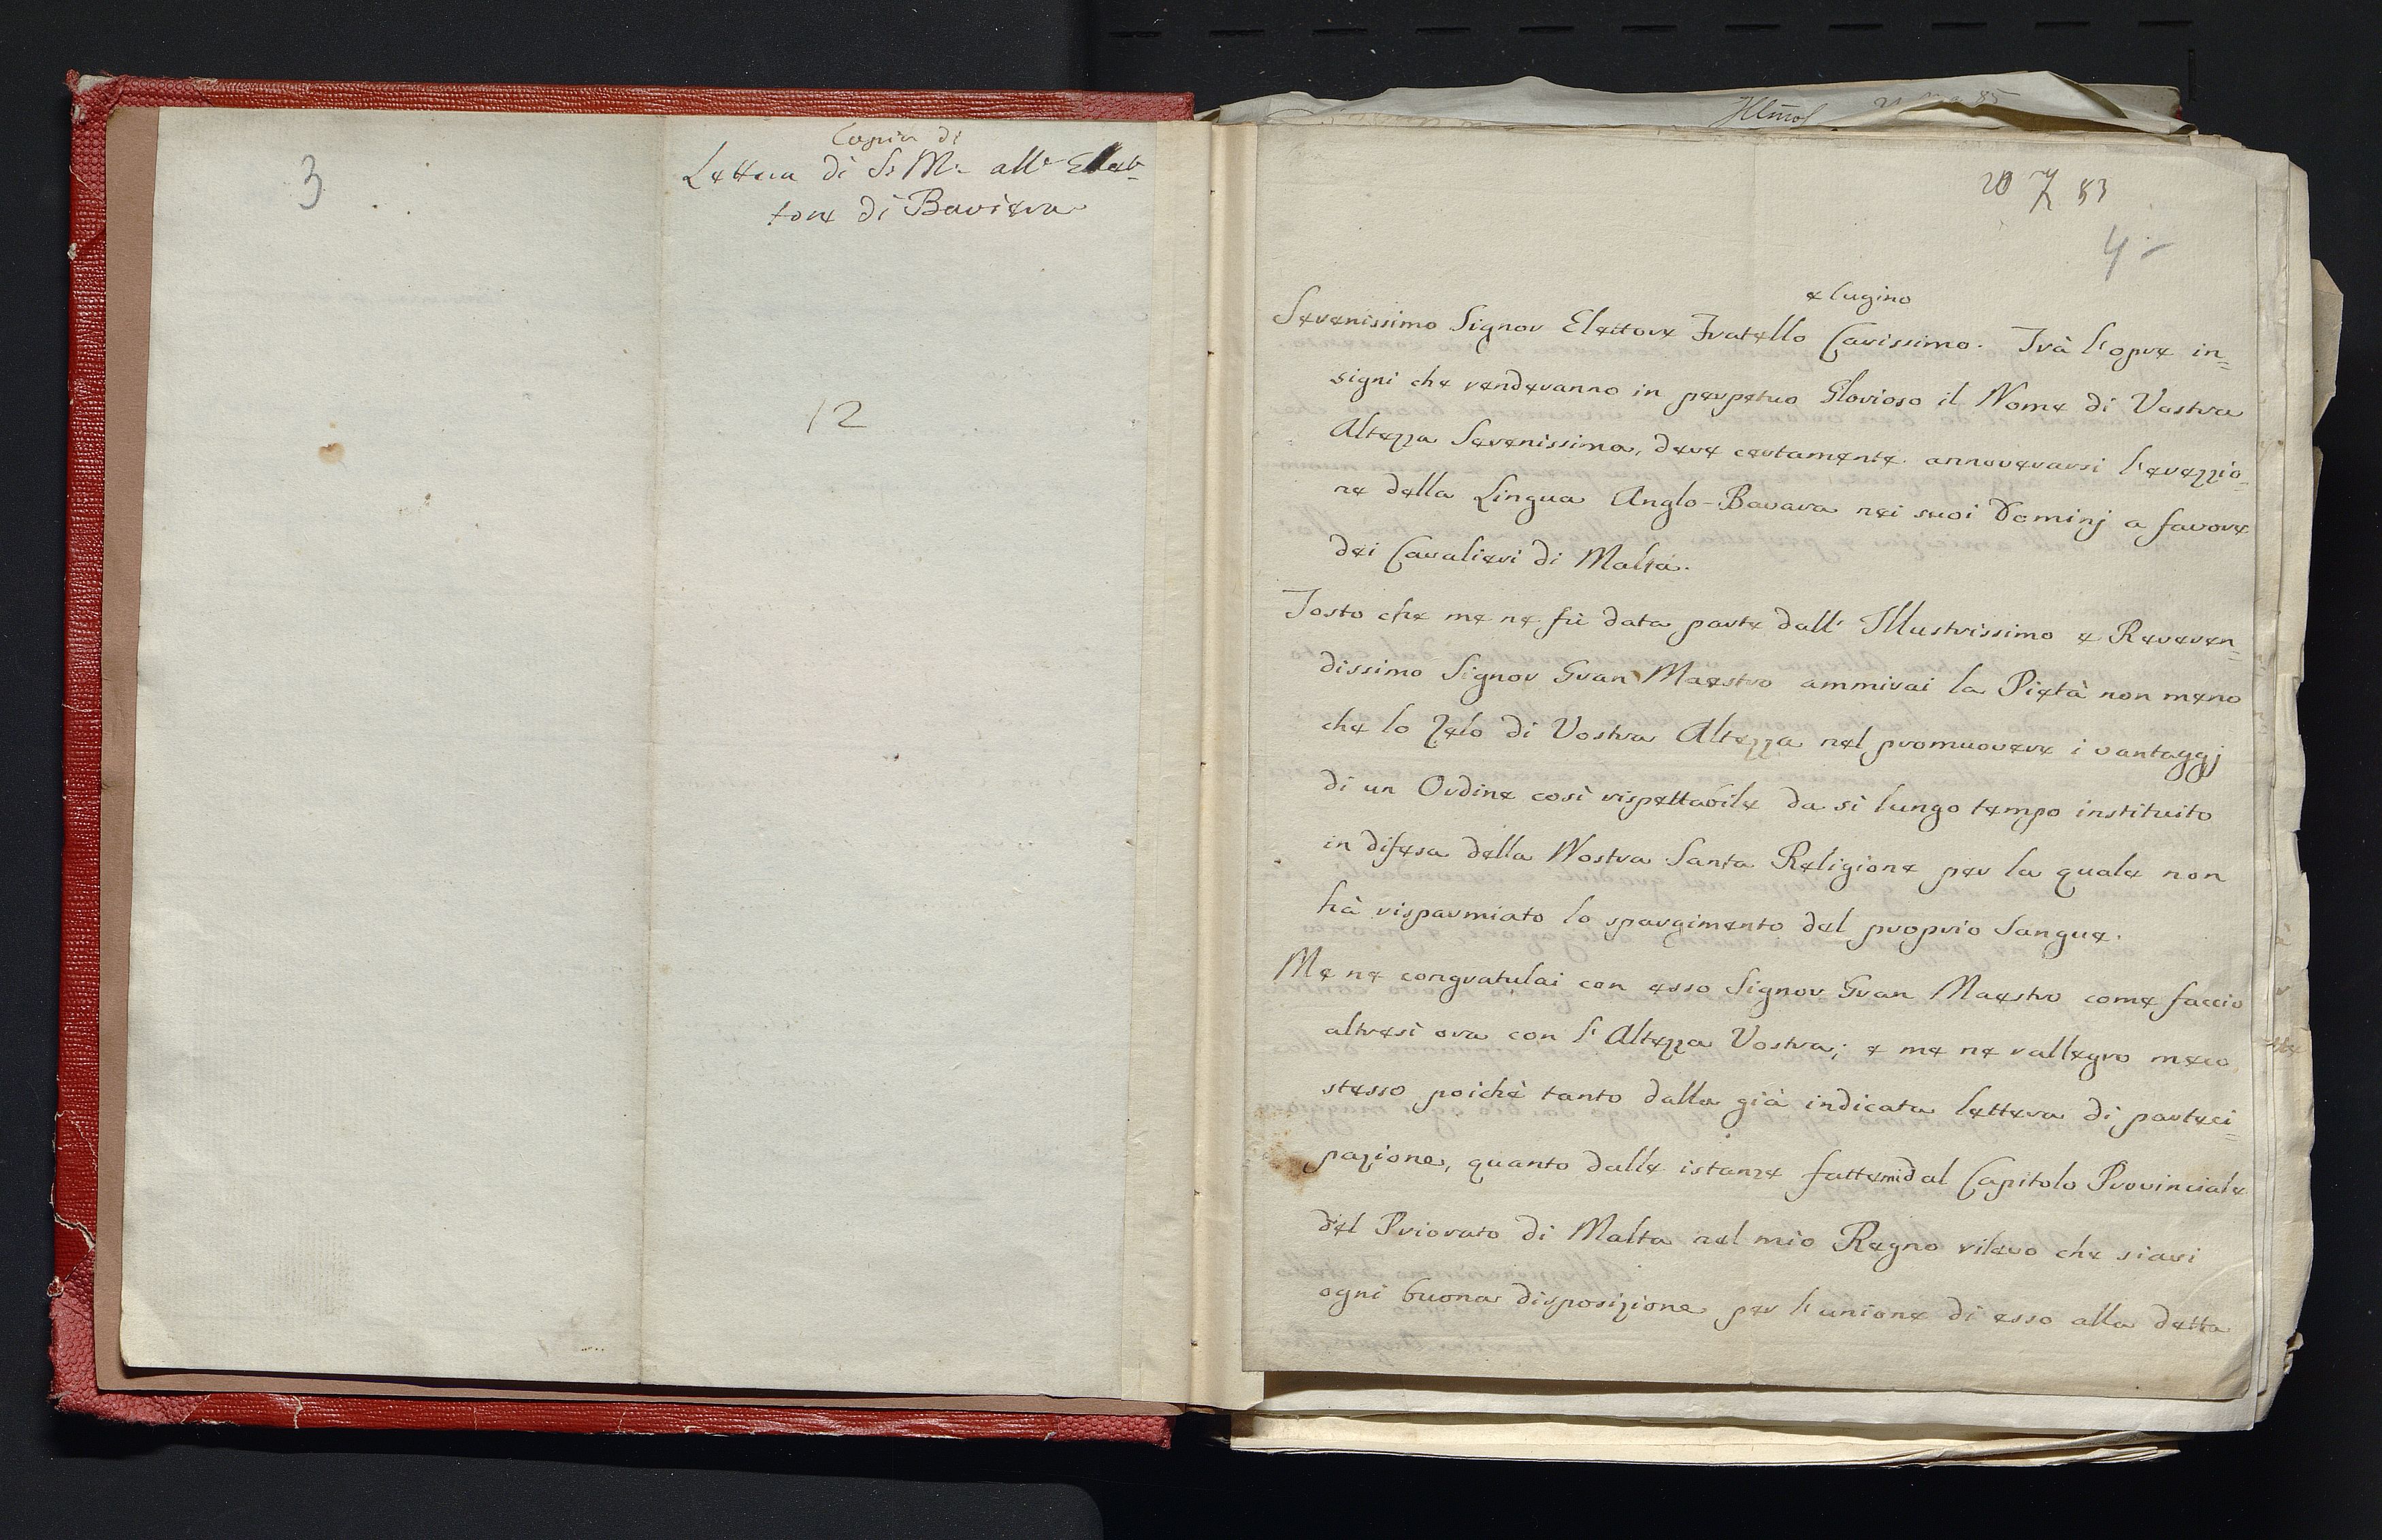 3
Copia di
Lettera di S. M. all' Elet-
tore di Baviera
12
20 7 83
4
e Cugino
Serenissimo Signor Elettore Fratello Carissimo. Trà l'opre in=
signi che renderanno in perpetuo Glorioso il Nome di Vostra
Altezza Serenissima, deve certamente annoverarsi l'erezzio-
ne della Lingua Anglo-Bavara nei suoi Dominj a favore
dei Cavalieri di Malta.
Tosto che me ne fù data parte dall' Illustrissimo e Reveren=
dissimo Signor Gran Maestro ammirai la Pietà non meno
che lo Zelo di Vostra Altezza nel promuovere i vantaggj
di un Ordine così rispettabile da sì lungo tempo instituito
in difesa della Nostra Santa Religione per la quale non
hà risparmiato lo spargimento del proprio Sangue.
Me ne congratulai con esso Signor Gran Maestro come faccio
altresì ora con l'Altezza Vostra; e me ne rallegro meco
stesso poichè tanto dalla già indicata lettera di parteci=
pazione, quanto dalle istanze fattemi dal Capitolo Provinciale
del Priorato di Malta nel mio Regno rilevo che siavi
ogni buona disposizione per l'unione di esso alla detta